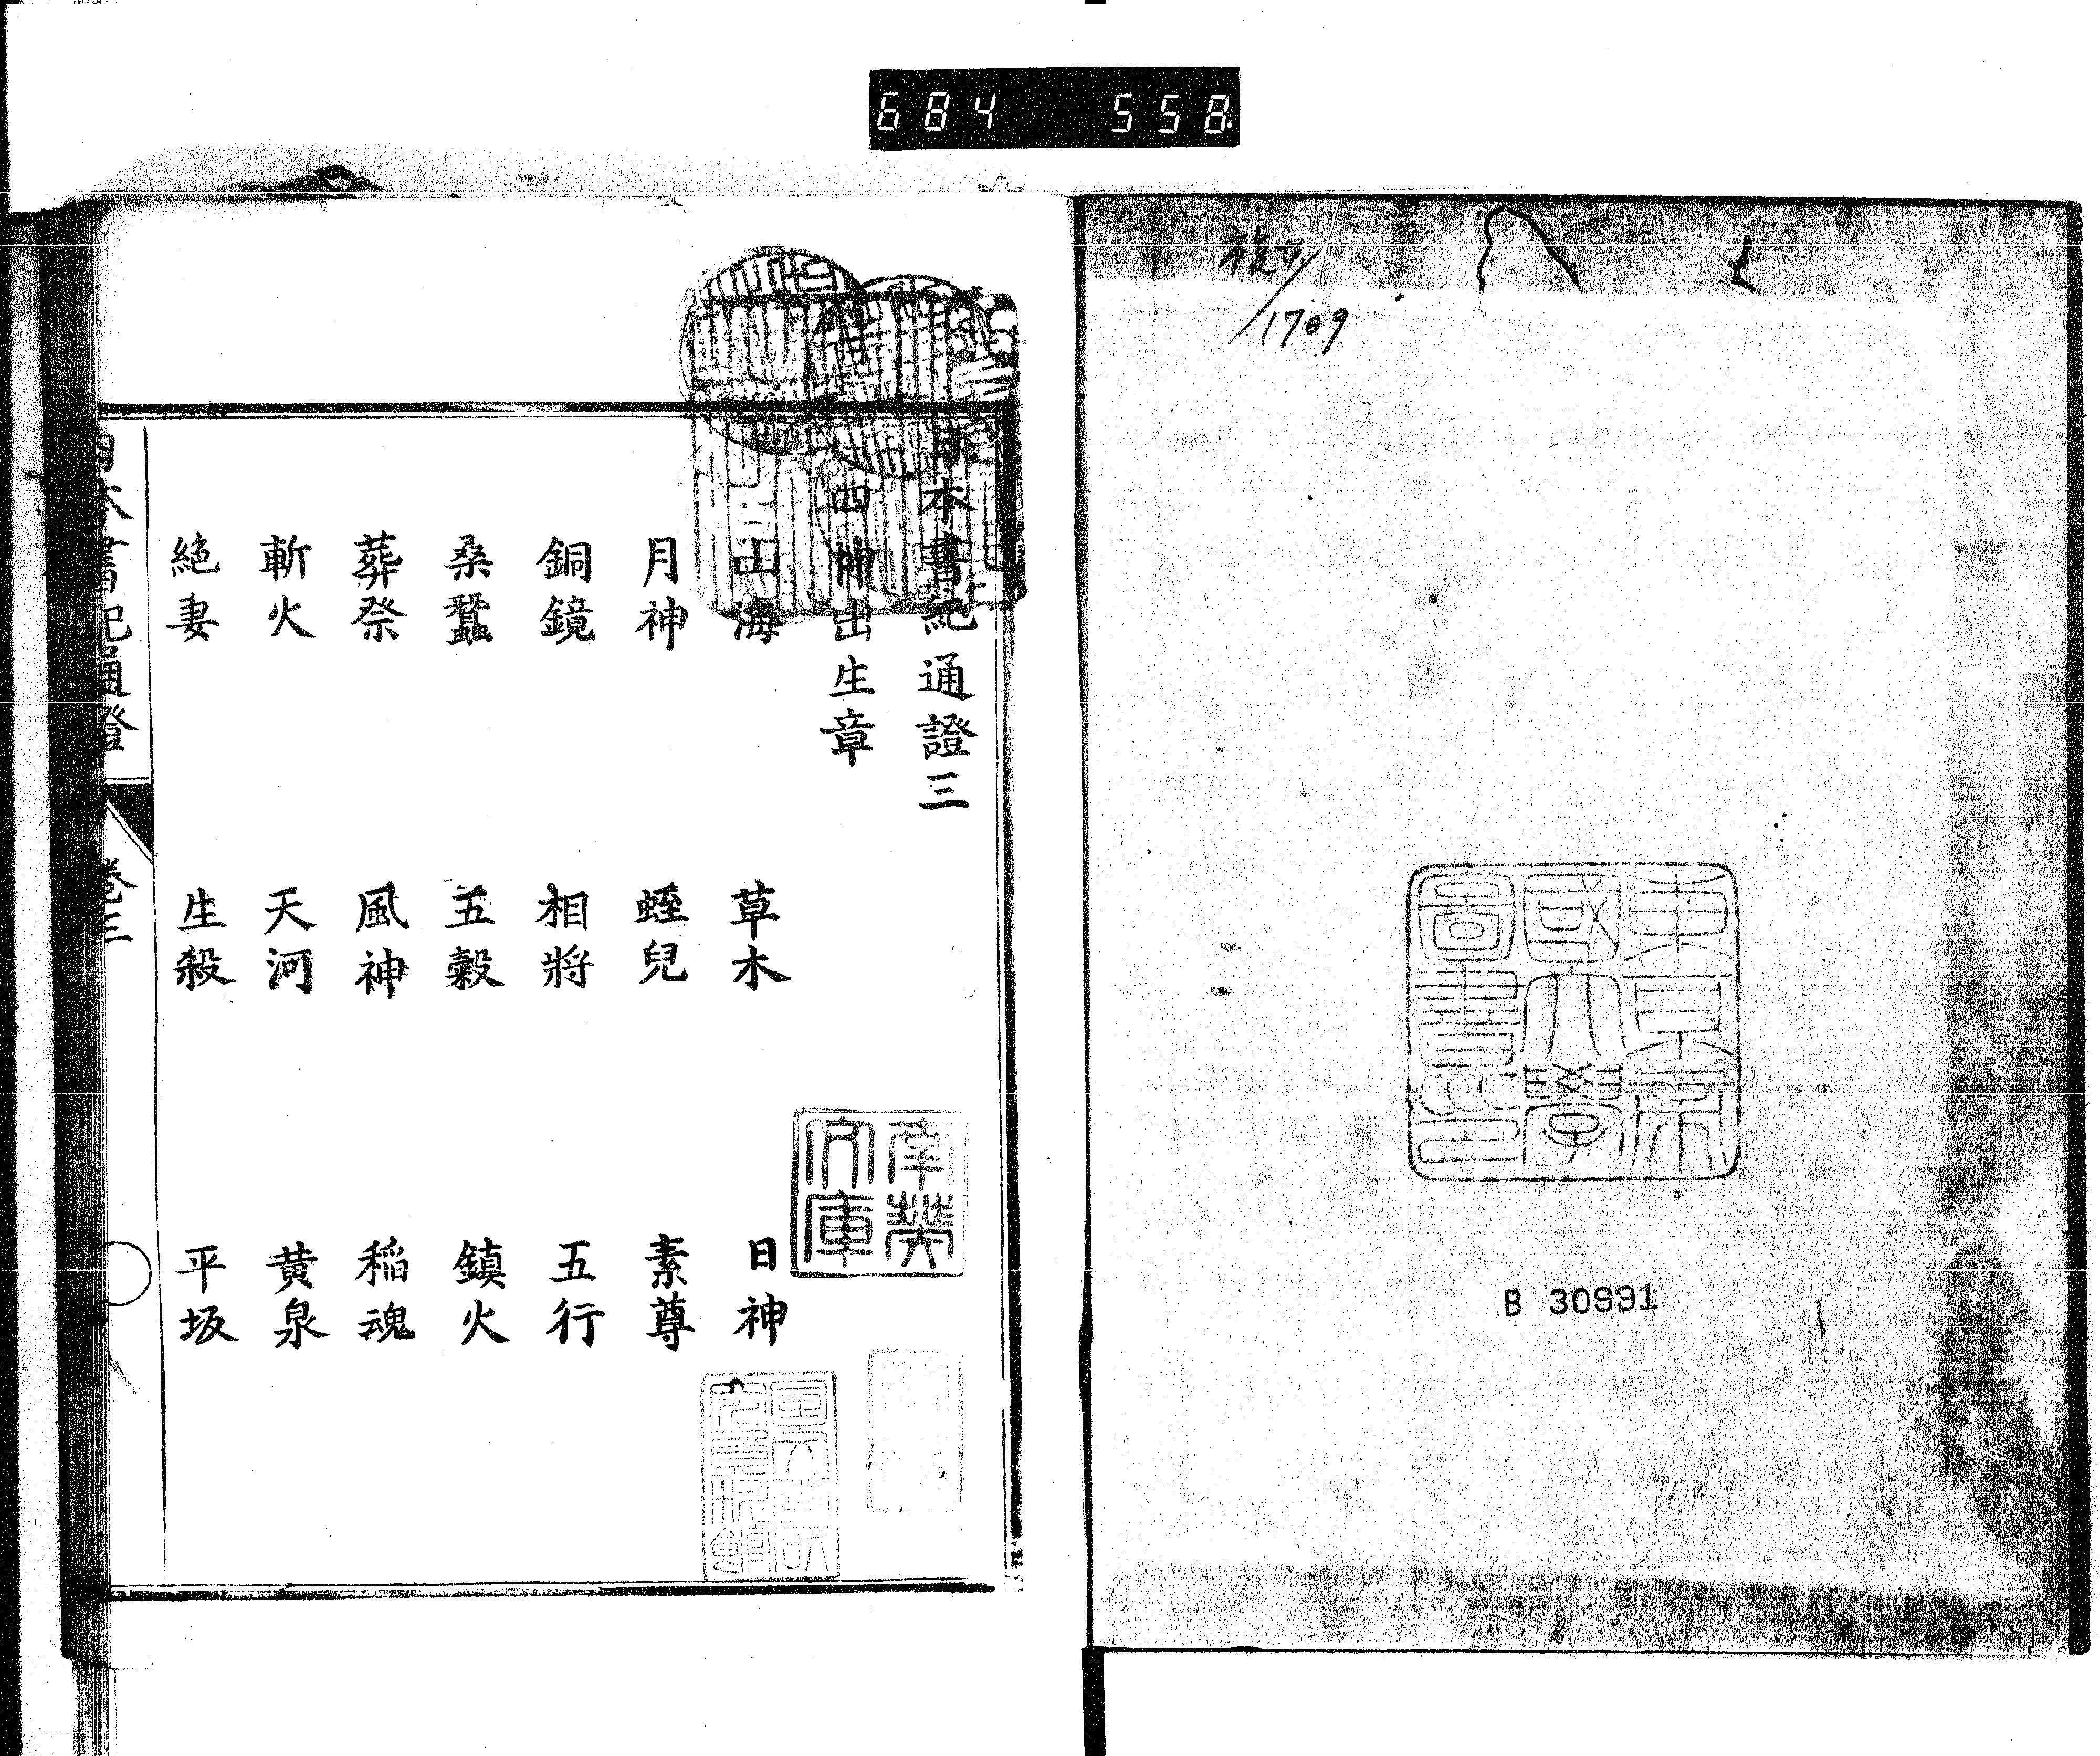 684 558
1709
東京帝
國大學
圖書之印
B 30991
日本書紀通證三
四神出生章
山海 草木 日神
月神 蛭兒 素尊
銅鏡 相將 五行
桑蠶 五穀 鎮火
葬祭 風神 稲魂
斬火 天河 黄泉
絶妻 生殺 平坂
日本書紀通證 卷三
文庫